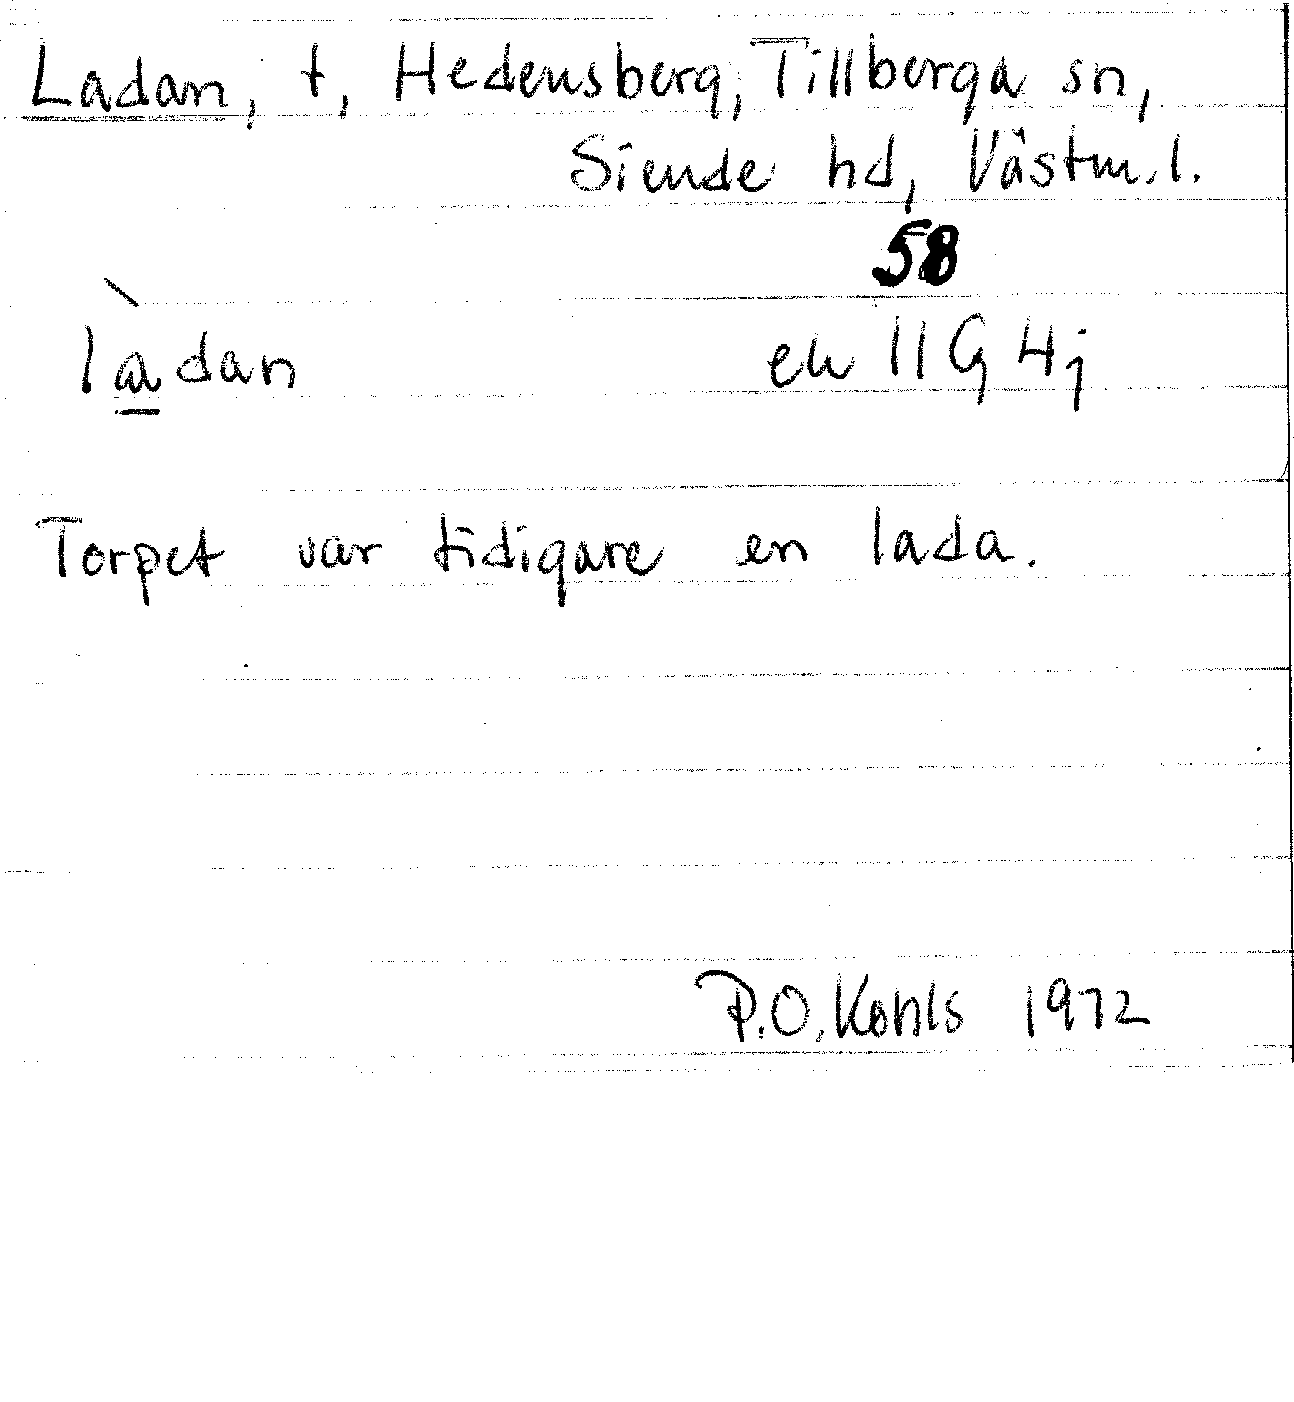 Ladan, t, Hedensberg, Tillberga sn,
Siende hd, Västm.l.
58
ladan ek 11G 4j
Torpet var tidigare en lada.
P.O. Kohls 1972